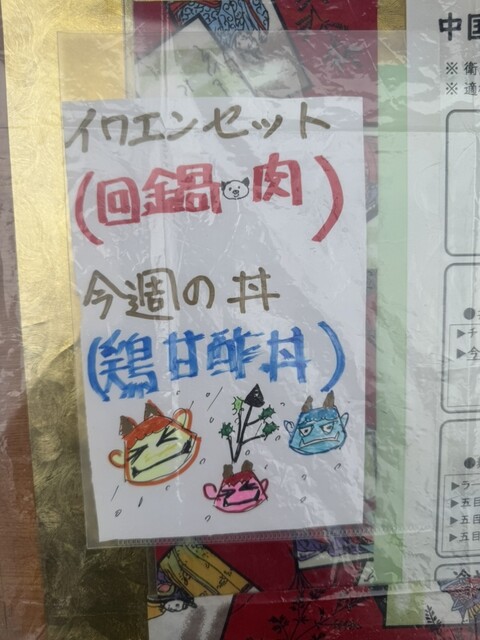 イワエンセット
(回鍋肉)
今週の丼
(鶏甘酢丼)
中国
※ 衛
※ 適
▶チ
▶今
▶ラー
▶五目
▶五目
▶五目